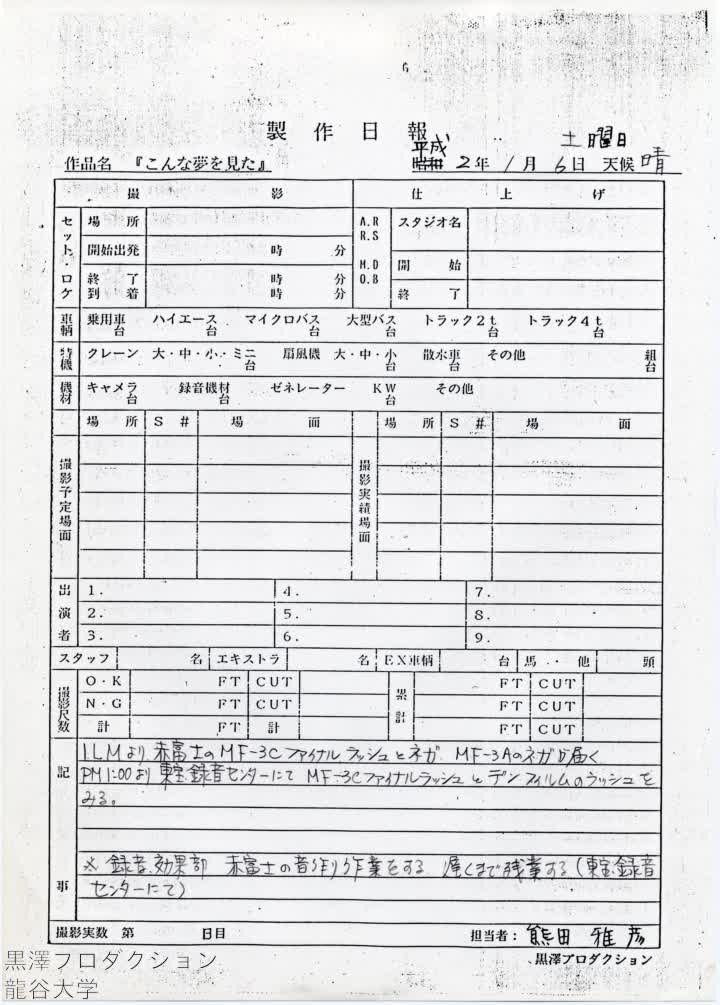 製作日報
平成 土曜日
作品名 『こんな夢を見た』 昭和 2年 1月 6日 天候 晴
撮影 仕上げ
セット・ロケ 場所 A.R R.S スタジオ名
開始出発 時 分
終了 時 分 M.D O.B 開始
到着 時 分 終了
車輌 乗用車 台 ハイエース 台 マイクロバス 台 大型バス 台 トラック2t 台 トラック4t 台
特機 クレーン 大・中・小・ミニ 台 扇風機 大・中・小 台 散水車 台 その他 組 台
機材 キャメラ 台 録音機材 台 ゼネレーター KW 台 その他
場所 S# 場面 場所 S# 場面
撮影予定場面 撮影実績場面
出演者 1. 4. 7.
2. 5. 8.
3. 6. 9.
スタッフ 名 エキストラ 名 EX車輌 台 馬・他 頭
撮影尺数 O・K FT CUT 累計 FT CUT
N・G FT CUT FT CUT
計 FT 計 FT CUT
記事
ILMより、赤富士のMF-3Cファイナルラッシュとネガ、MF-3Aのネガが届く
PM1:00より東宝録音センターにて MF-3Cファイナルラッシュとデンフィルムのラッシュを
みる。
※録音、効果部 赤富士の音作り作業をする。遅くまで残業する(東宝録音
センターにて)
撮影実数 第 日目 担当者:熊田雅彦
黒澤プロダクション
黒澤プロダクション
龍谷大学